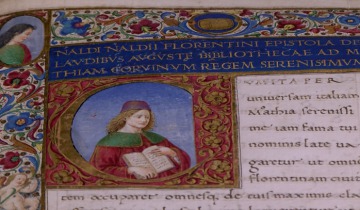 NALDI NALDII FLORENTINI EPISTOLA DE
LAVDIBVS AVGVSTE BIBLIOTHECAE AD M
THIAM CORVINVM REGEM SERENISSIMVM
VM ITA PER
universam italiam
Mathia serenissi
me iam fama tua
nominis late va
garetur ut omni
florentinam civit
tem occuparet omnesque de tuis maximis